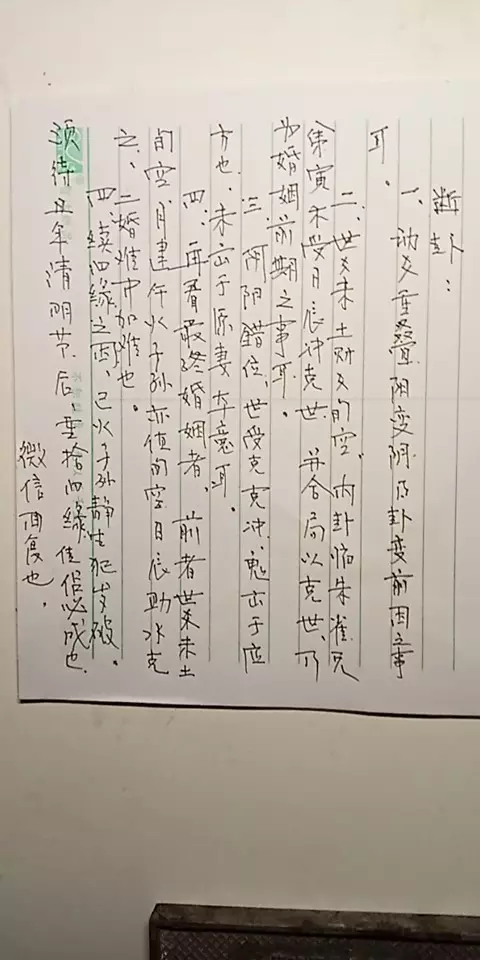 断卦：
一、动爻重叠，阴变阴，乃卦变前因之事
耳。
二、世爻未土财爻旬空，内卦临朱雀兄
弟寅木受月辰冲克世，并合局以克世，乃
为婚姻前期之事耳。
三、阴阳错位，世受克克冲，鬼出于应
方也，未出于原妻本意耳。
四、再看最终婚姻者，前者世爻未土
旬空，月建午火子孙亦值旬空日辰助水克
之，二婚难中加难也。
四、续四缘之酉，己火子孙静生犯岁破，
须待丑年清明节后，重拾四缘，佳侣必成也。
微信酉复也，